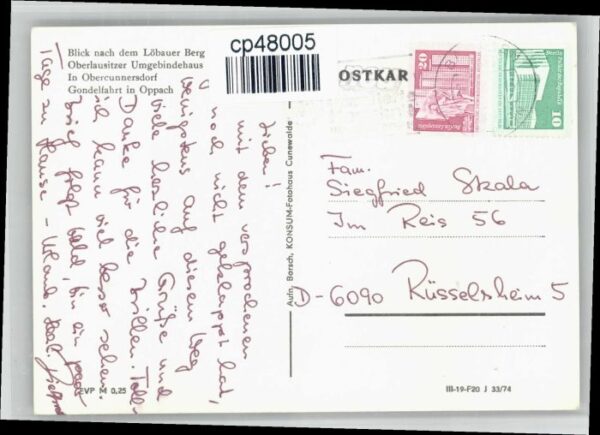 Blick nach dem Löbauer Berg
Oberlausitzer Umgebindehaus
In Obercunnersdorf
Gondelfahrt in Oppach
cp48005
OSTKAR
20
10
Berlin
Ihr Lieben!
mit dem versprochenen
noch nicht geklappt hat,
wenigstens auf diesem Weg
viele herzliche Grüße und
Danke für die Brillen. Toll
ich kann viel besser sehen.
Brief folgt bald, bin ein paar
Tage zu Hause - Urlaub. Herzl.
Aufn. Borsch, KONSUM-Fotohaus Cunewalde
Fam.
Siegfried Skala
Im Reis 56
D-6090 Rüsselsheim 5
EVP M 0,25
III-19-F20 J 33/74